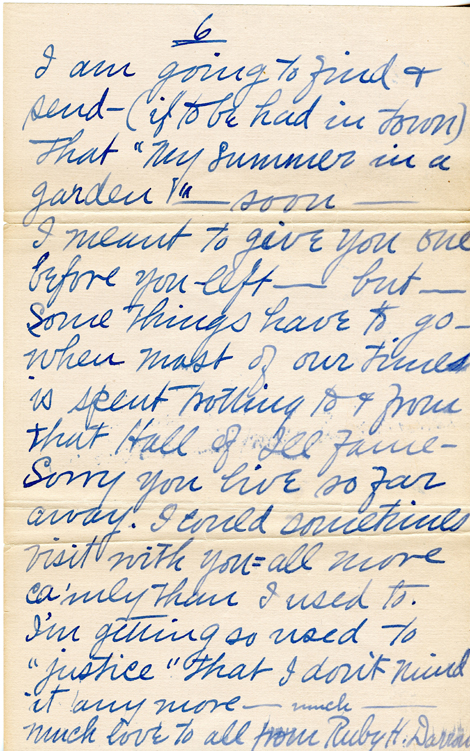 6
I am going to find &
send - (if to be had in town)
that "My Summer in a
garden!" — soon —
I meant to give you one
before you left — but —
Some things have to go -
when most of our times
is spent trotting to & from
that Hall of Ill Fame -
Sorry you live so far
away. I could sometimes
visit with you=all more
ca'mly than I used to.
I'm getting so used to
"justice" that I don't mind
it any more — much —
much love to all from Ruby H.